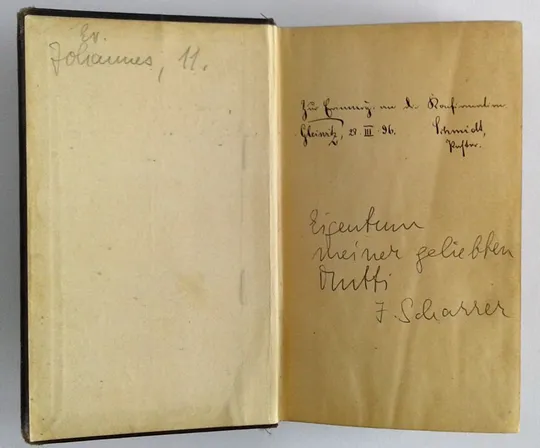 Ev.
Johannes, 11.
Zur Erinnerg. an d. Konfirmation
Gleiwitz, 28 III 96. Schmidt,
Pastor.
Eigentum
meiner geliebten
Mutti
J. Scharrer